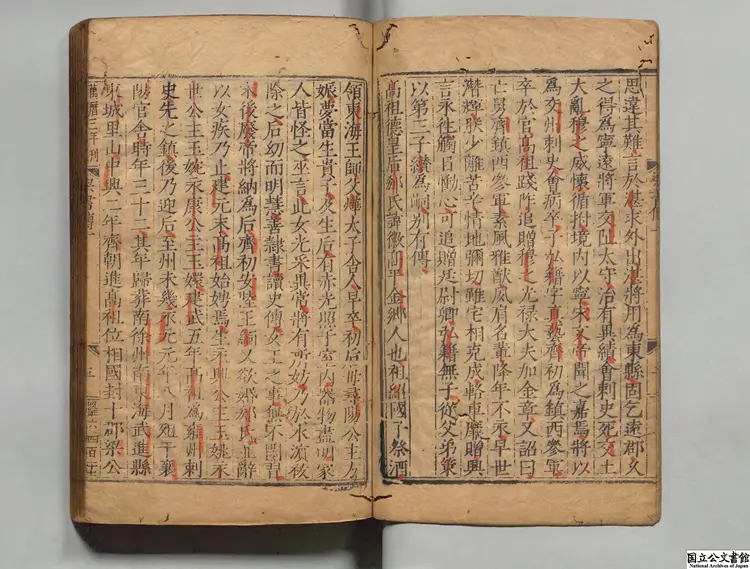 思違其難言於湛求外出湛將用為東縣固乞遠郡久
之得為寧遠將軍交阯太守治有異績會刺史死交土
大亂穆之威懷循拊境内以寧宋文帝聞之嘉焉將以
為交州刺史會病卒子弘籍字真藝齊初為鎮西參軍
卒於官高祖踐阼追贈穆之光禄大夫加金章又詔曰
亡舅齊鎮西參軍素風雅猷夙肩名輩降年不永早世
潛輝朕少離苦辛情地彌切雖宅相克成輅車靡贈興
言永往觸目慟心可追贈廷尉卿弘籍無子從父弟策
以第三子纘為嗣别有傳
高祖德皇后郗氏諱徽高平金鄉人也祖紹國子祭酒
領東海王師父燁太子舍人早卒初后母尋陽公主方
娠夢當生貴子及生后有赤光照于室内器物盡明家
人皆怪之巫言此女光采異常將有所妨乃於水濱祓
除之后幼而明慧善隸書讀史傳女工之事無不閑習
宋後廢帝將納為后齊初安陸王緬又欲婚郗氏並辭
以女疾乃止建元末高祖始娉焉生永興公主玉姚永
世公主玉婉永康公主玉嬛建武五年高祖為雍州刺
史先之鎮後乃迎后至州未幾永元元年八月殂于襄
陽官舍時年三十二其年歸葬南徐州南東海武進縣
東城里山中興二年齊朝進高祖位相國封十郡梁公
三年刊
梁書傳一
五
国立公文書館
National Archives of Japan